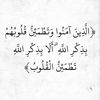 ﴿الَّذِينَ آمَنُوا وَتَطْمَئِنُّ قُلُوبُهُمْ
بِذِكْرِ اللَّهِ ۗ أَلَا بِذِكْرِ اللَّهِ
تَطْمَئِنُّ الْقُلُوبُ﴾